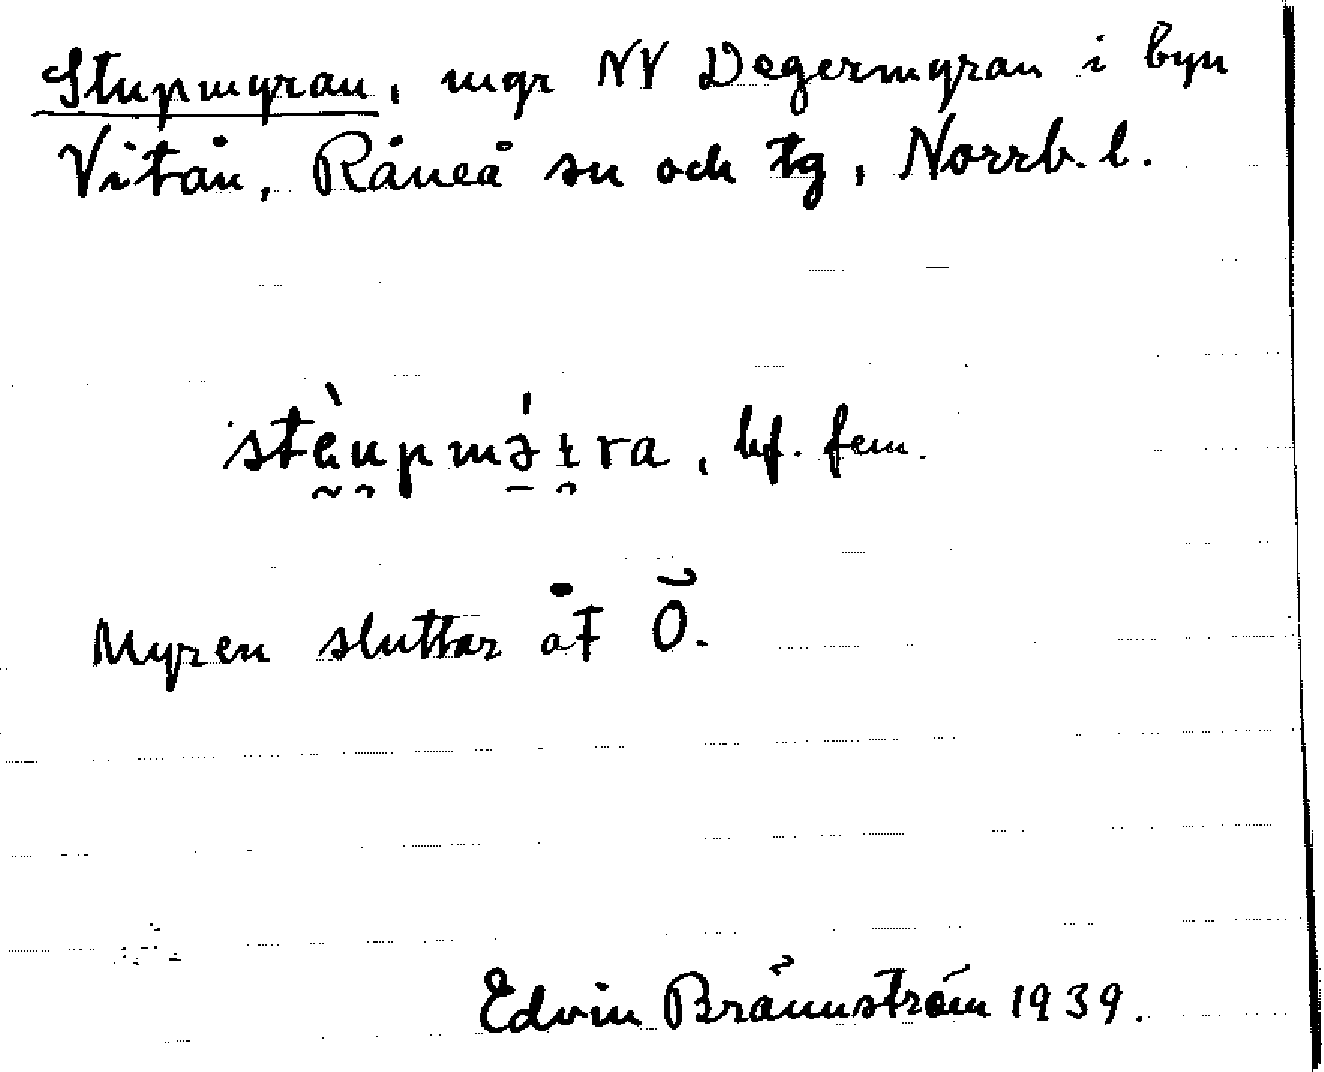 Stupmyran, mgr NV Degermyran i byn
Vitån, Råneå sn och tg, Norrb. l.
stèupmə́ɨra, bf. fem.
Myren sluttar åt Ö.
Edvin Brännström 1939.